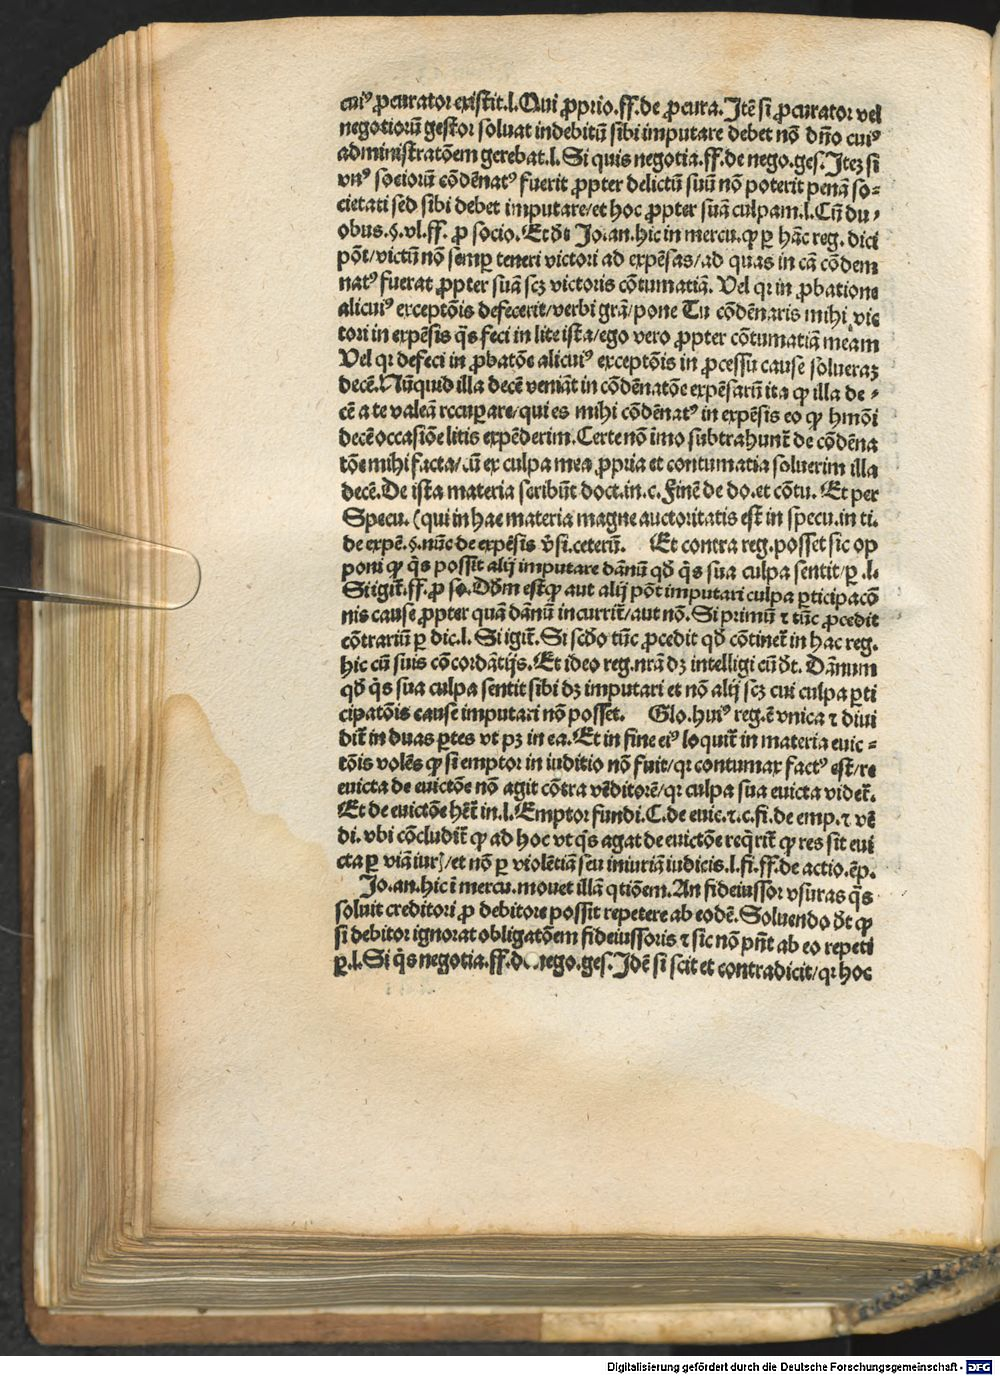 cuiꝰ ꝓcurator existit.l.Qui ꝓprio.ff.de ꝓcura.Itē si ꝓcurator vel
negotiorū gestor soluat indebitū sibi imputare debet nō dn̄o cuiꝰ
administratōem gerebat.l.Si quis negotia.ff.de nego.ges.Iteꝫ si
vnꝰ sociorū cōdēnatꝰ fuerit ꝓpter delictū suū nō poterit penā so⸗
cietati sed sibi debet imputare/et hoc ꝓpter suā culpam.l.Cū du⸗
obus.§.vl.ff. ꝓ socio.Et dē Jo.an.hic in mercu.ꝙ ꝑ hāc reg.dici
pōt/victū nō semꝑ teneri victori ad expēsas/ad quas in cā cōdem
natꝰ fuerat ꝓpter suā scꝫ victoris cōtumatiā. Vel qꝛ in ꝓbatione
alicuiꝰ exceptōis defecerit/verbi grā/pone Tu cōdēnaris mihi vic
tori in expēsis q̄s feci in lite ista/ego vero ꝓpter cōtumatiā meam
Vel qꝛ defeci in ꝓbatōe alicuiꝰ exceptōis in ꝓcessu cause solueraꝫ
decē.Nūquid illa decē veniāt in cōdēnatōe expēsarū ita ꝙ illa de⸗
cē a te valeā recuꝑare/qui es mihi cōdēnatꝰ in expēsis eo ꝙ hmōi
decē occasiōe litis expēderim.Certe nō īmo subtrahunt̄ de cōdēna
tōe mihi facta/cū ex culpa mea ꝓpria et contumatia soluerim illa
decē.De ista materia scribūt doct.in.c.Finē de do.et cōtu. Et per
Specu.(qui in hac materia magne auctoritatis est in specu.in ti.
de expē.§.nūc de expēsis v̄si.ceterū. Et contra reg.posset sic op
poni ꝙ q̄s possit alij imputare dānū qd̄ q̄s sua culpa sentit/ꝑ .l.
Si igit̄.ff.ꝓ so.Dd̄m est ꝙ aut alij pōt imputari culpa ꝑticipacō
nis cause ꝓpter quā dānū incurrit/aut nō. Si primū ⁊ tūc ꝓcedit
cōtrariū ꝑ dic.l. Si igit̄.Si scd̄o tūc ꝓcedit qd̄ cōtinet̄ in hac reg.
hic cū suis cōcordātijs.Et ideo reg.nrā dꝫ intelligi cū dt̄. Dānum
qd̄ q̄s sua culpa sentit sibi dꝫ imputari et nō alij scꝫ cui culpa ꝑti
cipatōis cause imputari nō posset. Glo.huiꝰ reg.ē vnica ⁊ diui
dit̄ in duas ꝑtes vt pꝫ in ea.Et in fine eiꝰ loquit̄ in materia euic⸗
tōis volēs ꝙ si emptor in iuditio nō fuit/qꝛ contumax factꝰ est/re
euicta de euictōe nō agit cōtra vēditorē/qꝛ culpa sua euicta videt̄.
Et de euictōe hēt̄ in.l.Emptor fundi.C.de euic.⁊.c.fi.de emp.⁊ vē
di.vbi cōcludit̄ ꝙ ad hoc vt q̄s agat de euictōe req̄rit̄ ꝙ res sit eui
cta ꝑ viā iur̄/et nō ꝑ violētiā seu iniuriā iudicis.l.fi.ff.de actio.ēp.
Jo.an.hic ī mercu.mouet illā q̄tiōem.An fideiussor vsuras q̄s
soluit creditori ꝓ debitore possit repetere ab eodē.Soluendo dt̄ ꝙ
si debitor ignorat obligatōem fideiussoris ⁊ sic nō pn̄t ab eo repeti
ꝑ.l.Si q̄s negotia.ff.de nego.ges.Idē si scit et contradicit/qꝛ hoc
Digitalisierung gefördert durch die Deutsche Forschungsgemeinschaft - DFG